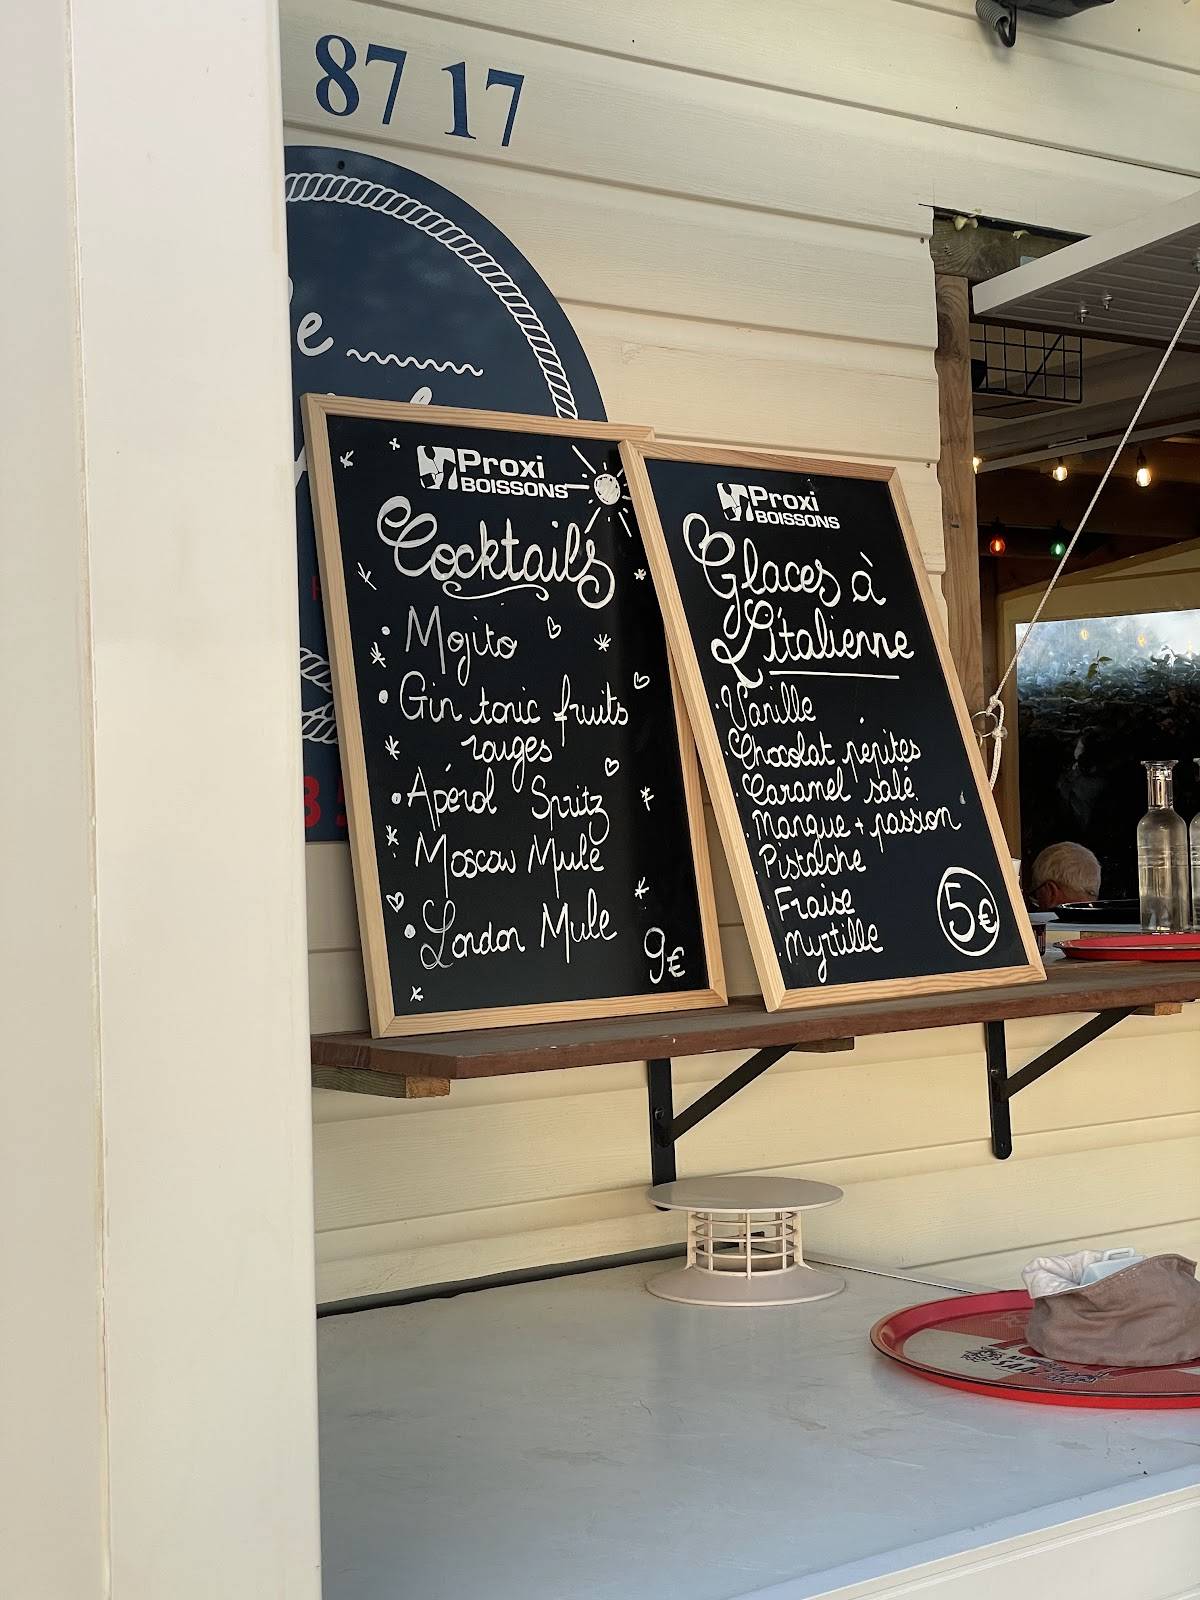 87 17
Proxi
BOISSONS
Cocktails
• Mojito
• Gin tonic fruits
rouges
• Apérol Spritz
• Moscow Mule
• London Mule
9€
Proxi
BOISSONS
Glaces à
L'italienne
• Vanille
• Chocolat pépites
• Caramel salé
• Mangue + passion
• Pistache
• Fraise
• Myrtille
5€